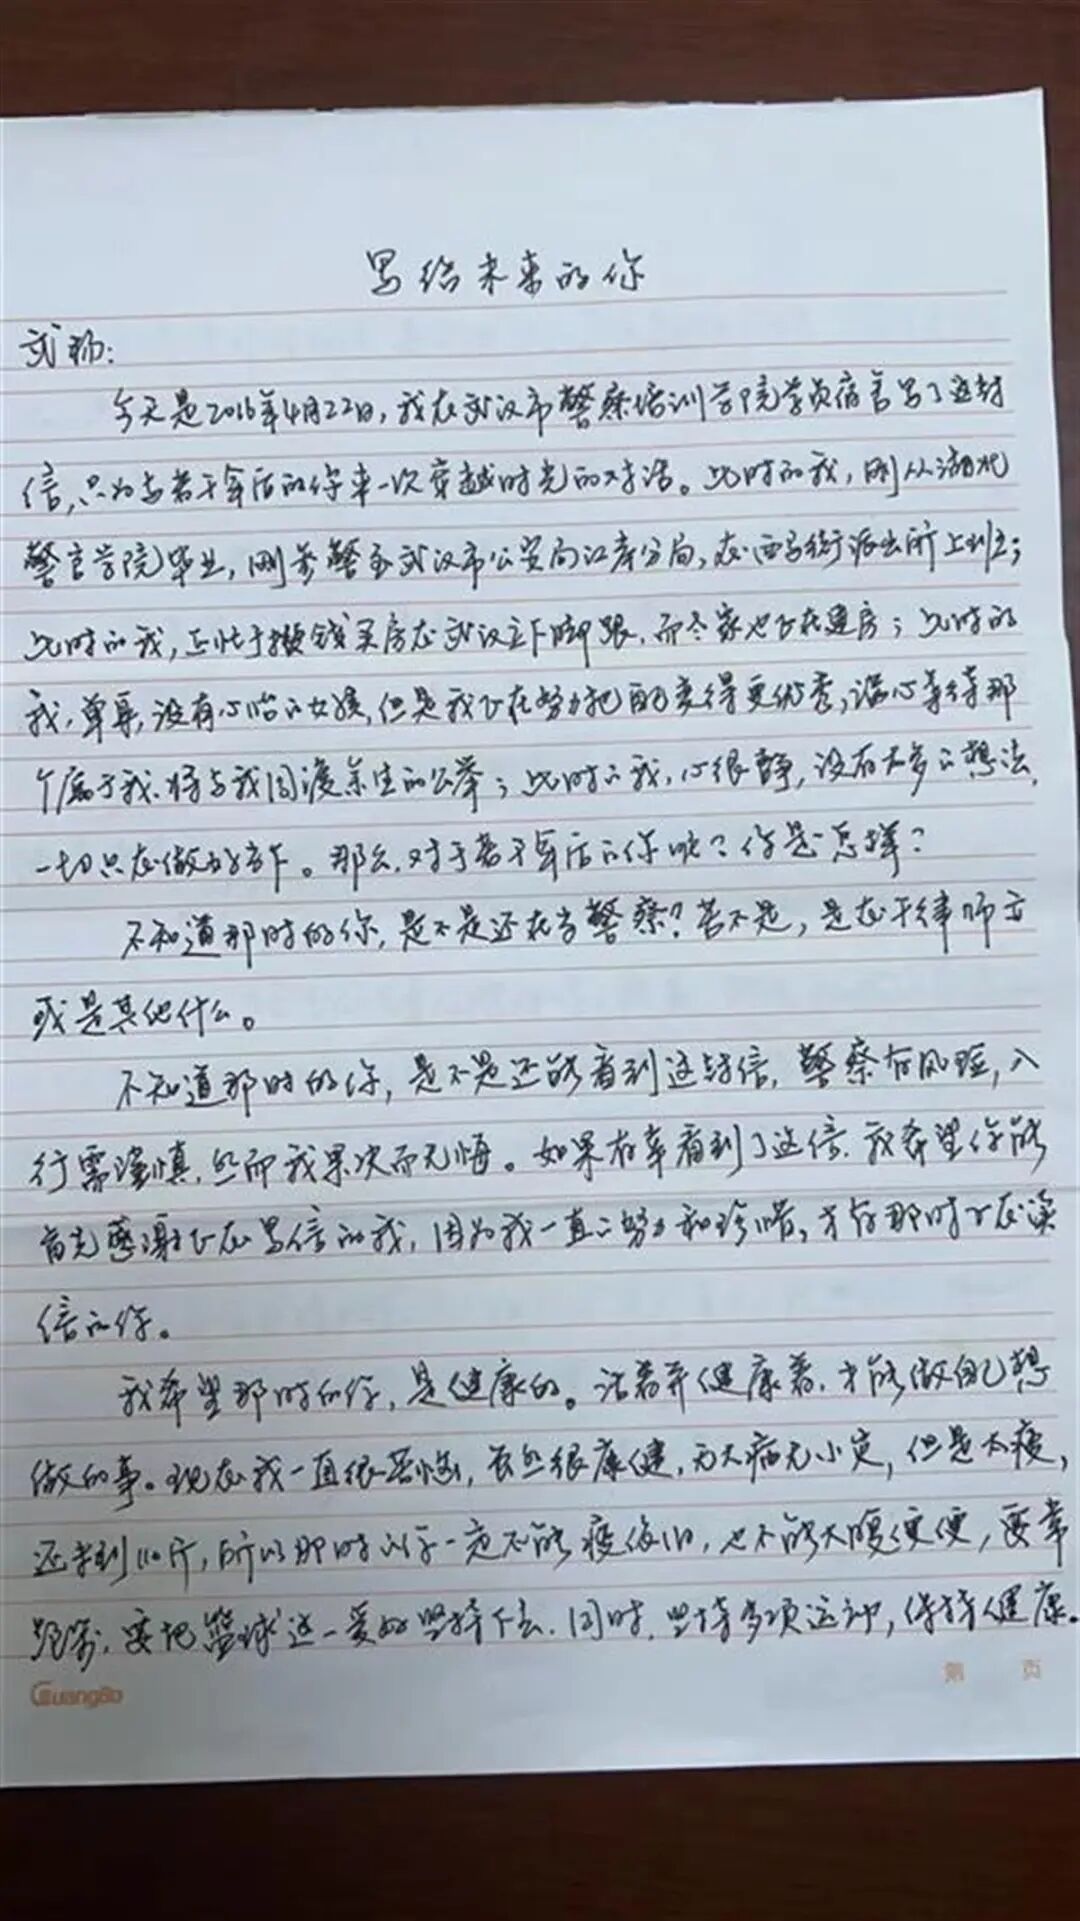 写给未来的你
武扬：
今天是2016年4月22日，我在武汉市警察培训学院学员宿舍写了这封
信，只为与若干年后的你来一次穿越时光的对话。此时的我，刚从湖北
警官学院毕业，刚参警至武汉市公安局江岸分局，在西马街派出所上班；
此时的我，正忙于攒钱买房在武汉立下脚跟，而老家也正在建房；此时的
我，单身，没有心怡的女孩，但是我正在努力把自己变得更优秀，满心等待那
个属于我、将与我同渡余生的公举；此时的我，心很静，没有太多的想法，
一切只在做好当下。那么，对于若干年后的你呢？你是怎样？
不知道那时的你，是不是还在当警察？若不是，是在干律师亦
或是其他什么。
不知道那时的你，是不是还能看到这封信，警察有风险，入
行需谨慎，然而我果决而无悔。如果有幸看到了这信，我希望你能
首先感谢正在写信的我，因为我一直的努力和珍惜，才有那时正在读
信的你。
我希望那时的你，是健康的。活着并健康着，才能做自己想
做的事。现在我一直很苦恼，虽然很康健，无大病无小灾，但是太瘦，
还未到110斤，所以那时的你一定不能瘦依旧，也不能大腹便便，要常
跑步，要把篮球这一爱好坚持下去，同时，坚持多项运动，保持健康。
GuangBo
第 页